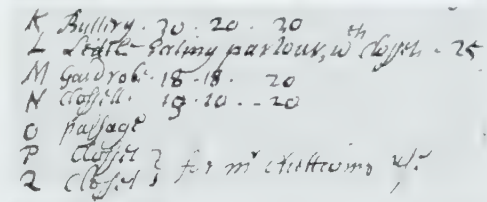 K Buttiry . 20 . 20 . 20
L Little Eating parlour, wth Closset - 25
M Gardrobe . 18 - 18 . 20
N Clossett . 19 . 10 . - 20
O passage
P Closset } for mr
Q Closset }